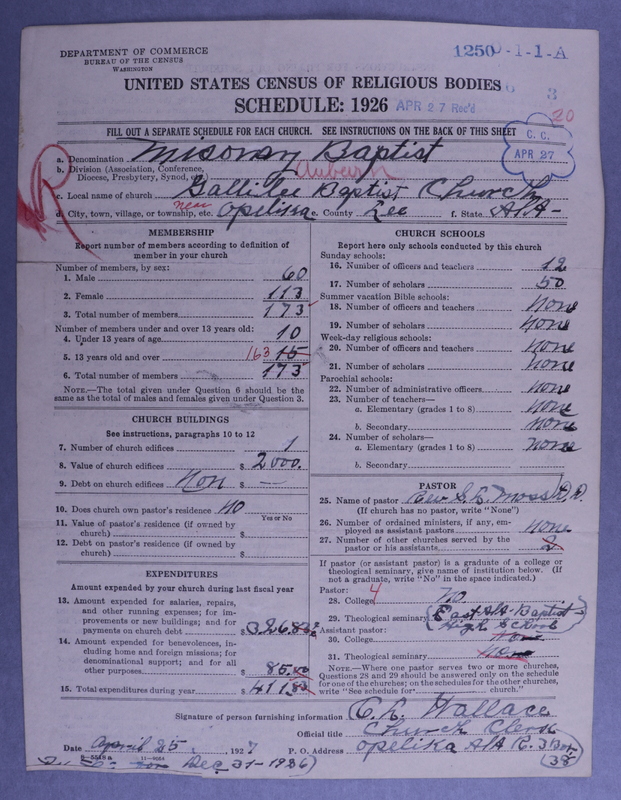 DEPARTMENT OF COMMERCE
BUREAU OF THE CENSUS
WASHINGTON
1250-1-1-A
UNITED STATES CENSUS OF RELIGIOUS BODIES
SCHEDULE: 1926
APR 27 Rec'd
3
20
FILL OUT A SEPARATE SCHEDULE FOR EACH CHURCH. SEE INSTRUCTIONS ON THE BACK OF THIS SHEET
C. C.
APR 27
a. Denomination Misonary Baptist
b. Division (Association, Conference, Diocese, Presbytery, Synod, etc.) Auburn
c. Local name of church Gallilee Baptist Church
d. City, town, village, or township, etc. near Opelika e. County Lee f. State Ala-
MEMBERSHIP
Report number of members according to definition of member in your church
Number of members, by sex:
1. Male 60
2. Female 113
3. Total number of members 173
Number of members under and over 13 years old:
4. Under 13 years of age 10
5. 13 years old and over 163 15
6. Total number of members 173
NOTE.—The total given under Question 6 should be the same as the total of males and females given under Question 3.
CHURCH BUILDINGS
See instructions, paragraphs 10 to 12
7. Number of church edifices 1
8. Value of church edifices $ 2000.
9. Debt on church edifices Non $ —
10. Does church own pastor's residence NO
Yes or No
11. Value of pastor's residence (if owned by church) $
12. Debt on pastor's residence (if owned by church) $
EXPENDITURES
Amount expended by your church during last fiscal year
13. Amount expended for salaries, repairs, and other running expenses; for improvements or new buildings; and for payments on church debt $ 326.83
14. Amount expended for benevolences, including home and foreign missions; for denominational support; and for all other purposes $ 85.00
15. Total expenditures during year $ 411.83
CHURCH SCHOOLS
Report here only schools conducted by this church
Sunday schools:
16. Number of officers and teachers 12
17. Number of scholars 50
Summer vacation Bible schools:
18. Number of officers and teachers None
19. Number of scholars None
Week-day religious schools:
20. Number of officers and teachers None
21. Number of scholars None
Parochial schools:
22. Number of administrative officers None
23. Number of teachers—
a. Elementary (grades 1 to 8) None
b. Secondary None
24. Number of scholars—
a. Elementary (grades 1 to 8) None
b. Secondary
PASTOR
25. Name of pastor Rev S. L. Moss D.D.
(If church has no pastor, write "None")
26. Number of ordained ministers, if any, employed as assistant pastors None
27. Number of other churches served by the pastor or his assistants 2
If pastor (or assistant pastor) is a graduate of a college or theological seminary, give name of institution below. (If not a graduate, write "No" in the space indicated.)
Pastor: 4
28. College No.
29. Theological seminary East Ala-Baptist High School
Assistant pastor:
30. College None
31. Theological seminary None
NOTE.—Where one pastor serves two or more churches, Questions 28 and 29 should be answered only on the schedule for one of the churches; on the schedules for the other churches, write "See schedule for church."
Signature of person furnishing information C. R. Wallace
Official title Church Clerk
Date April 25, 1927 P. O. Address Opelika Ala R. 3 Box 38-
11—9084
Dec 31-1926)